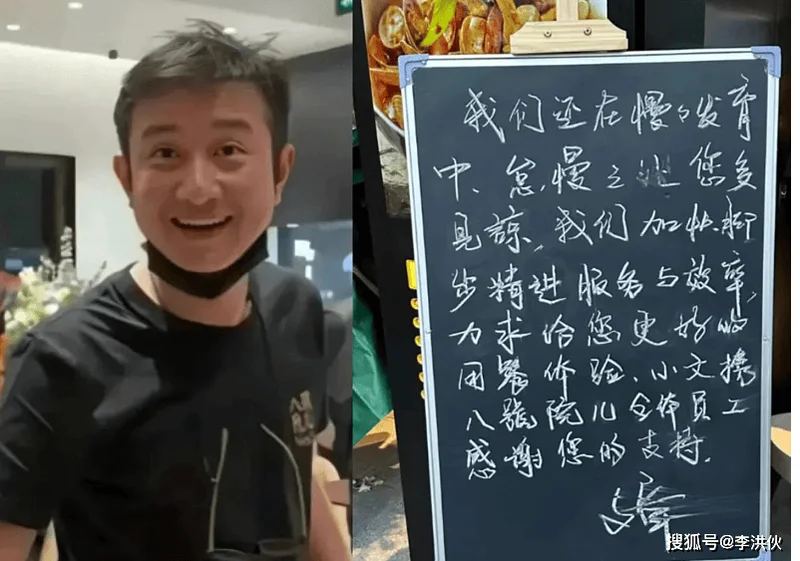 我们还在慢々发育
中、怠慢之处您多
见谅,我们加快脚
步精进服务与效率,
力求给您更好的
用餐体验、小文携
八號院儿全体员工
感谢您的支持.
搜狐号@李洪伙